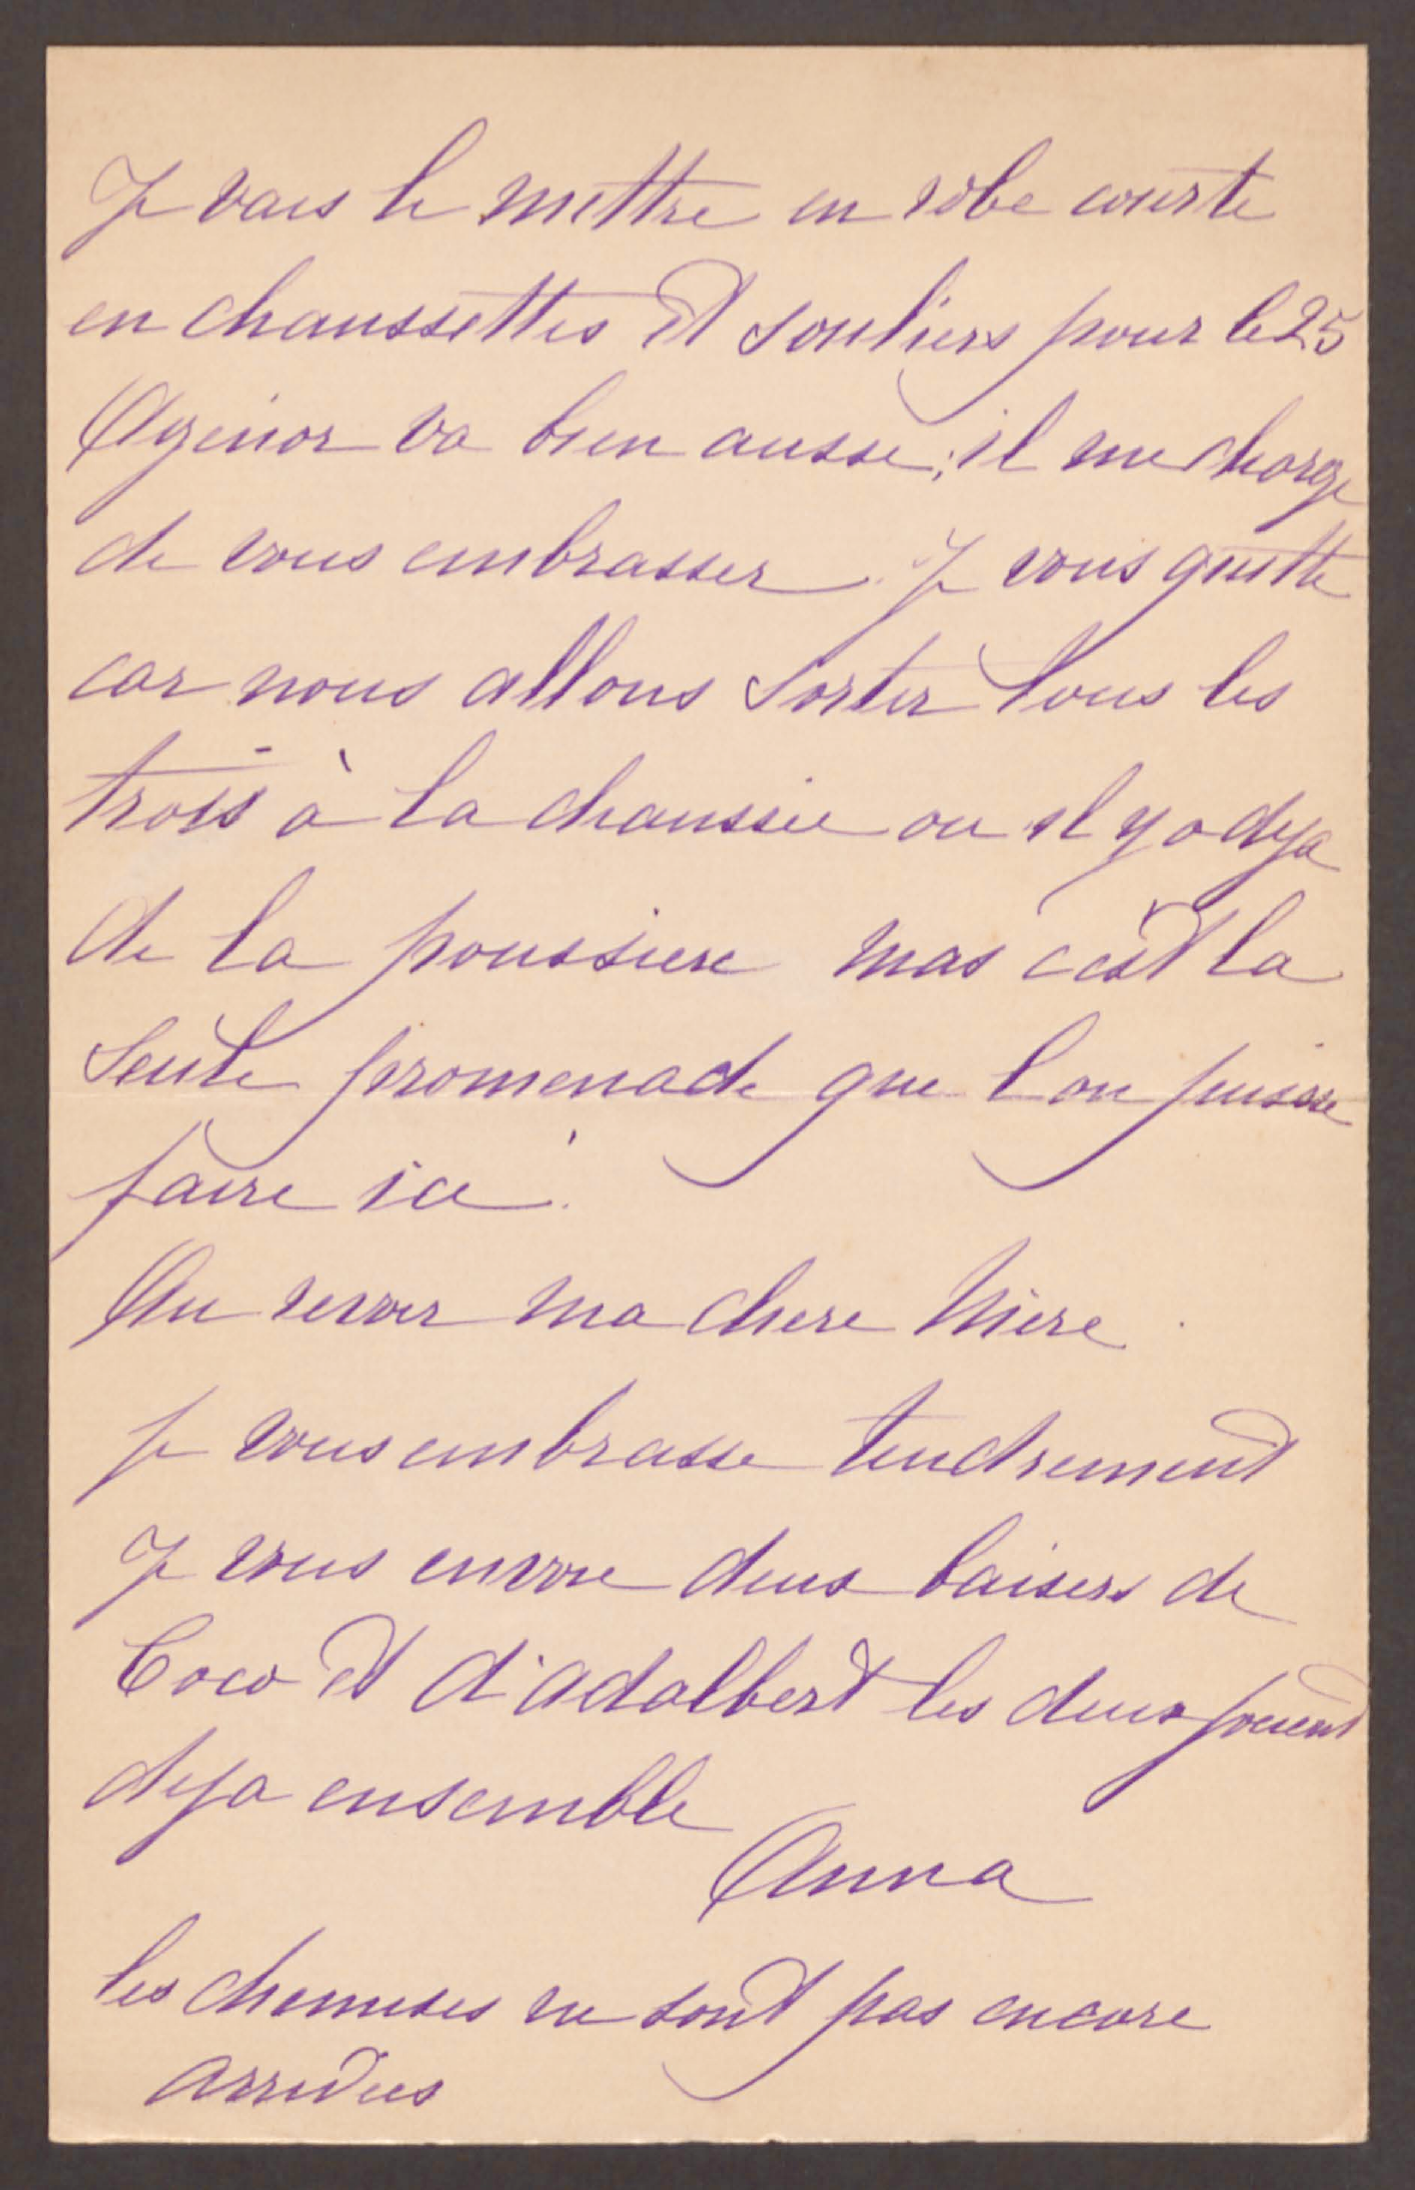 Je vais le mettre en robe courte
en chaussettes et souliers pour le 25
Agenor va bien aussi, il me charge
de vous embrasser. Je vous quitte
car nous allons sortir tous les
trois à la chaussée ou il y a deja
de la poussiere mas c'est la
seule promenade que l'on puisse
faire ici.
Au revoir ma chere Mere.
Je vous embrasse tendrement
Je vous envoie deux baisers de
Coco et d'adalbert les deux jouent
deja ensemble
Anna
les chemises ne sont pas encore
arrivées